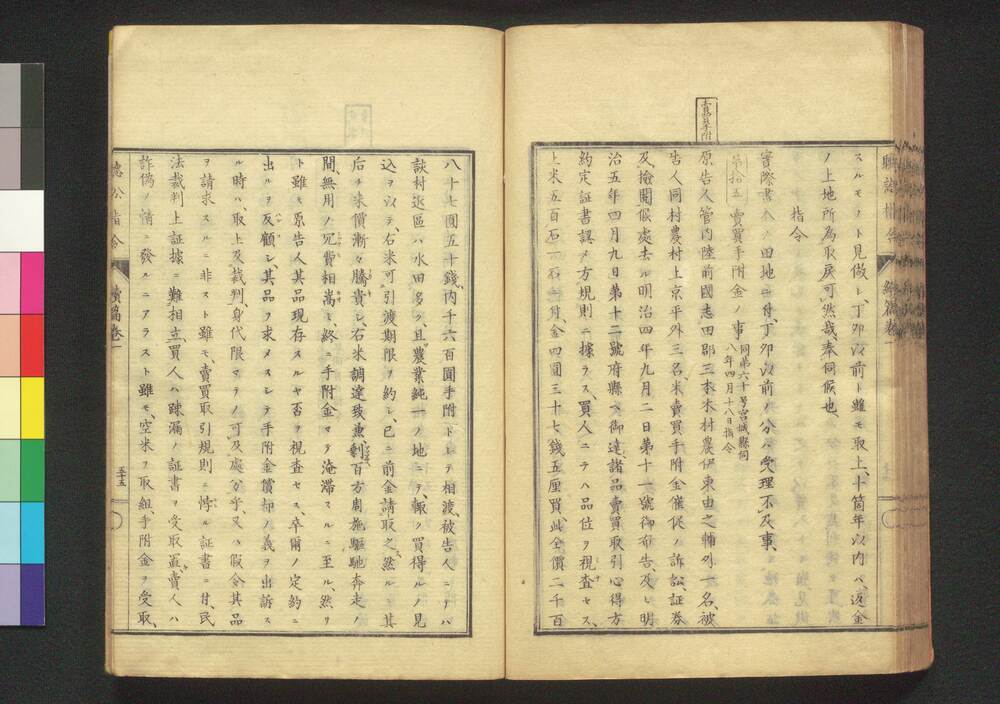 スルモノト見做シ、丁卯以前ト雖モ取上、十箇年以内ハ、返金
ノ上地所為取戻可然哉、奉伺候也、
指令
書面 田地ニ付、丁卯以前ノ分ハ受理不及事、
第拾五 賣買手附金ノ事
同第六十号宮城縣伺
八年四月十八日指令
原告人管内陸前國志田郡三本木村農伊東由之輔外一名、被
告人同村農村上京平外三名、米賣買手附金催促ノ訴訟、証券
及、撿閲候處、去ル明治四年九月二日第十一號御布告、及ヒ明
治五年四月九日第十二號府縣ヘ御達、諸品賣買取引心得方
約定証書認メ方規則ニ據ラス、買人ニテハ品位ヲ視査セス、
上米五百石一石ニ付、金四圓三十七錢五厘買、此全價二千百
八十七圓五十錢、内千六百圓手附トシテ相渡、被告人ニテハ
該村近區ハ水田多ク、且農業純一ノ地ニテ、輙ク買得ルノ見
込ヲ以テ、右米可引渡期限ヲ約シ、已ニ前金請取之、然ルニ其
后チ米價漸々騰貴シ、右米調達致兼、剰百方周旋驅馳奔走ノ
間、無用ノ冗費相嵩ミ、終ニ手附金マテ淹滞スルニ至ル、然リ
ト雖モ原告人其品現存スルヤ否ヲ視査セス、卒爾ノ定約ニ
出ルヲ反顧シ、其品ヲ求メスシテ手附金償却ノ義ヲ出訴ス
ル時ハ、取上及裁判、身代限マテノ可及處分乎、又ハ假令其品
ヲ請求スルニ非スト雖モ、賣買取引規則ニ悖ル証書ニ付、民
法裁判上証據ニ難相立、買人ハ疎漏ノ証書ヲ受取置、賣人ハ
詐偽ノ情ニ發ルニアラスト雖モ、空米ヲ取組手附金ヲ受取、
五十五